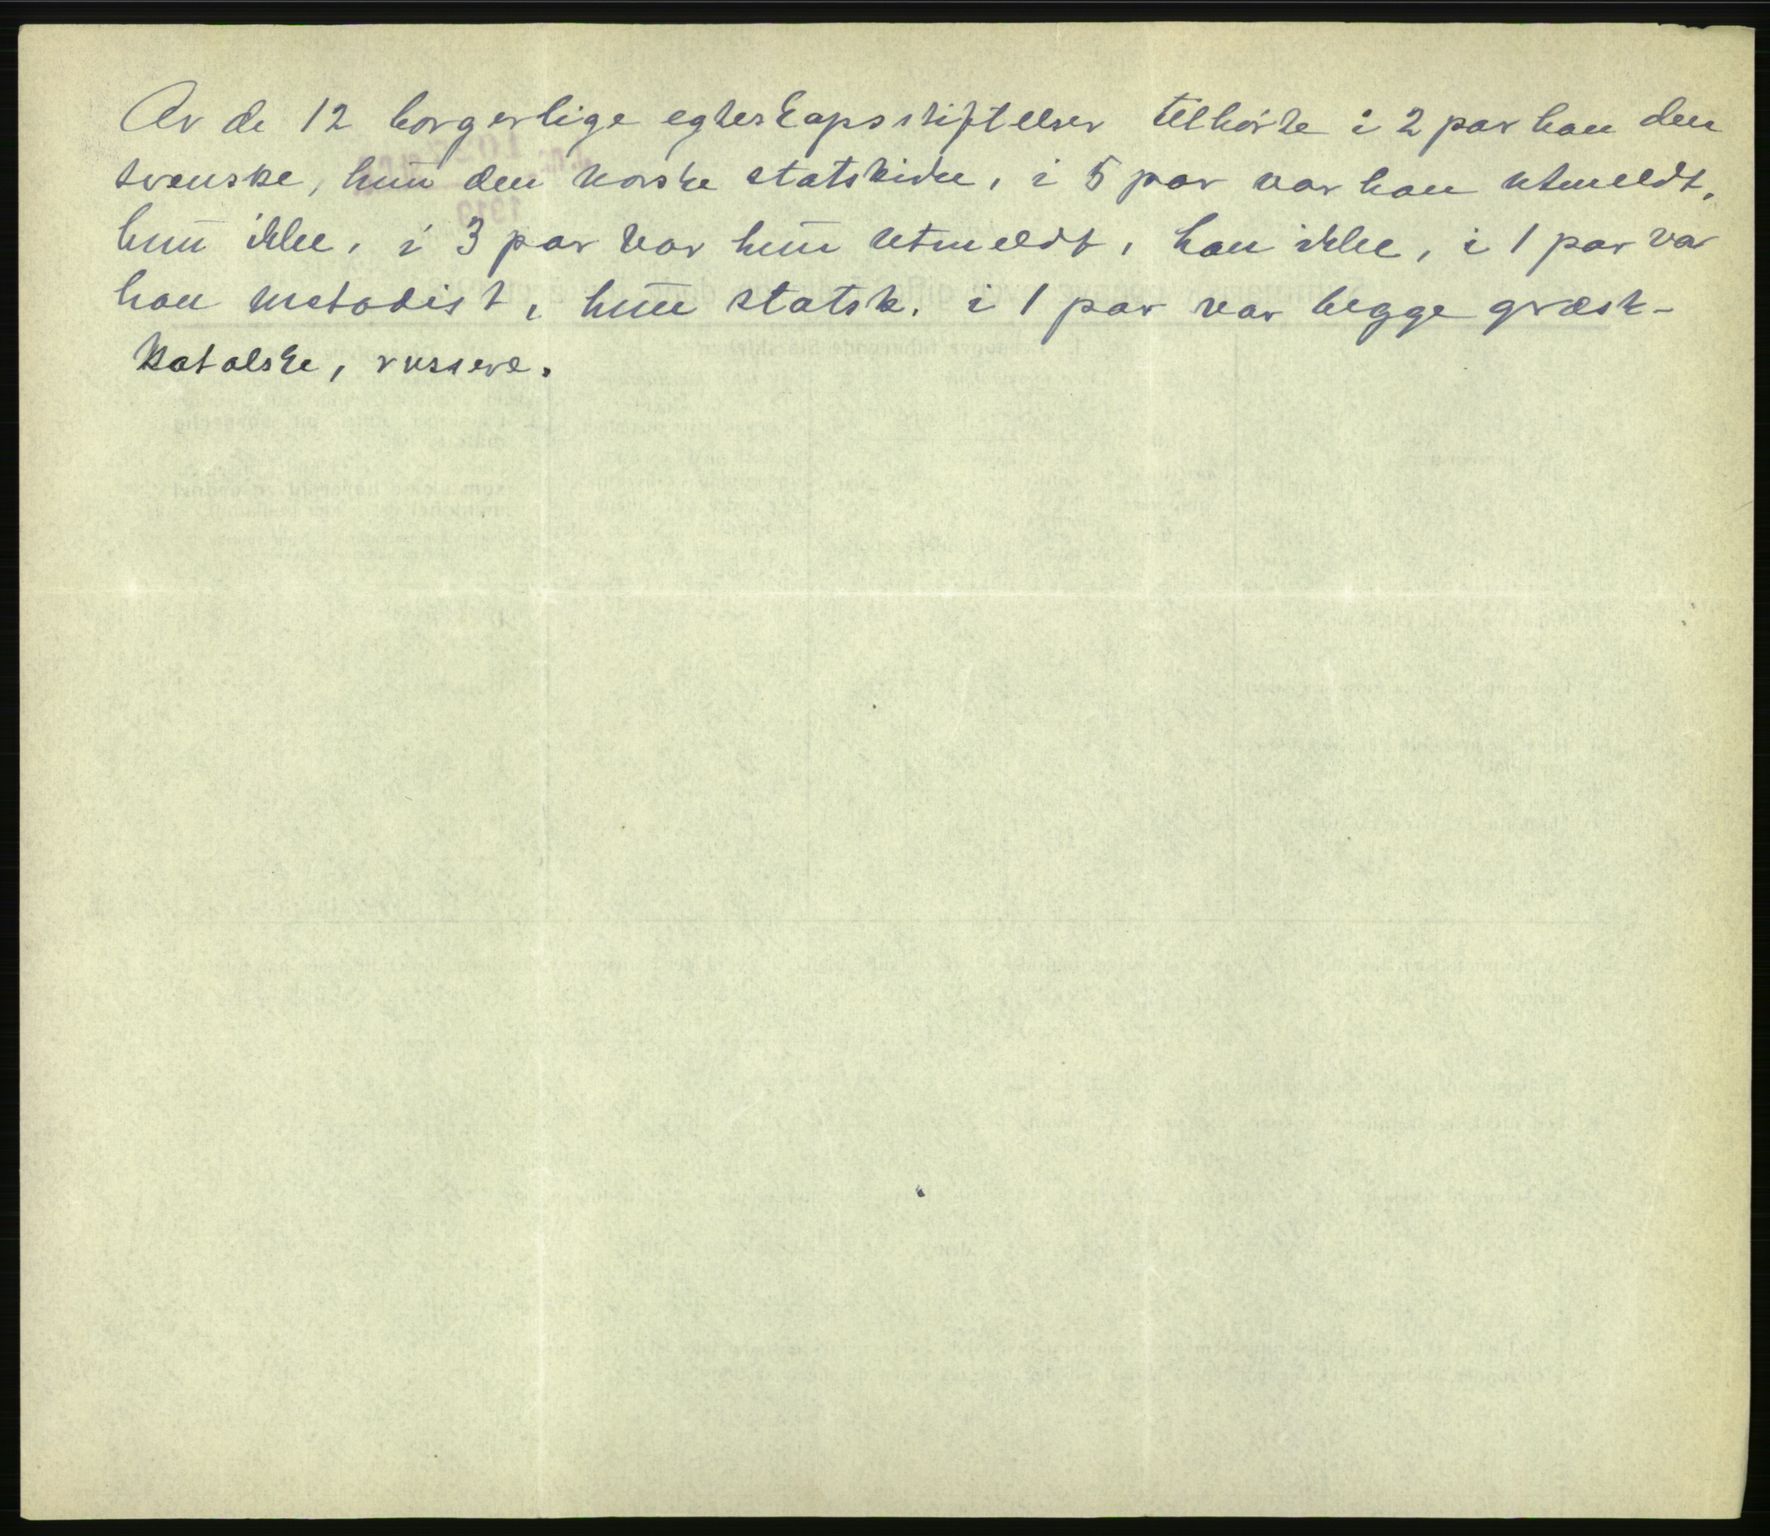 Av de 12 borgerlige egteskapsstiftelser tilhørte i 2 par han den
svenske, hun den norske statskirke, i 5 par var han utmeldt,
hun ikke, i 3 par var hun utmeldt, han ikke, i 1 par var
han metodist, hun statsk. i 1 par var begge græsk-
katolske, russere.